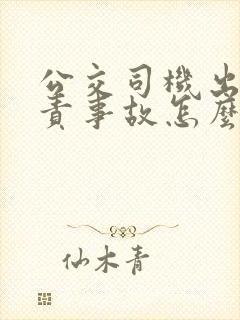 公交司機出
責事故怎麼
仙木青